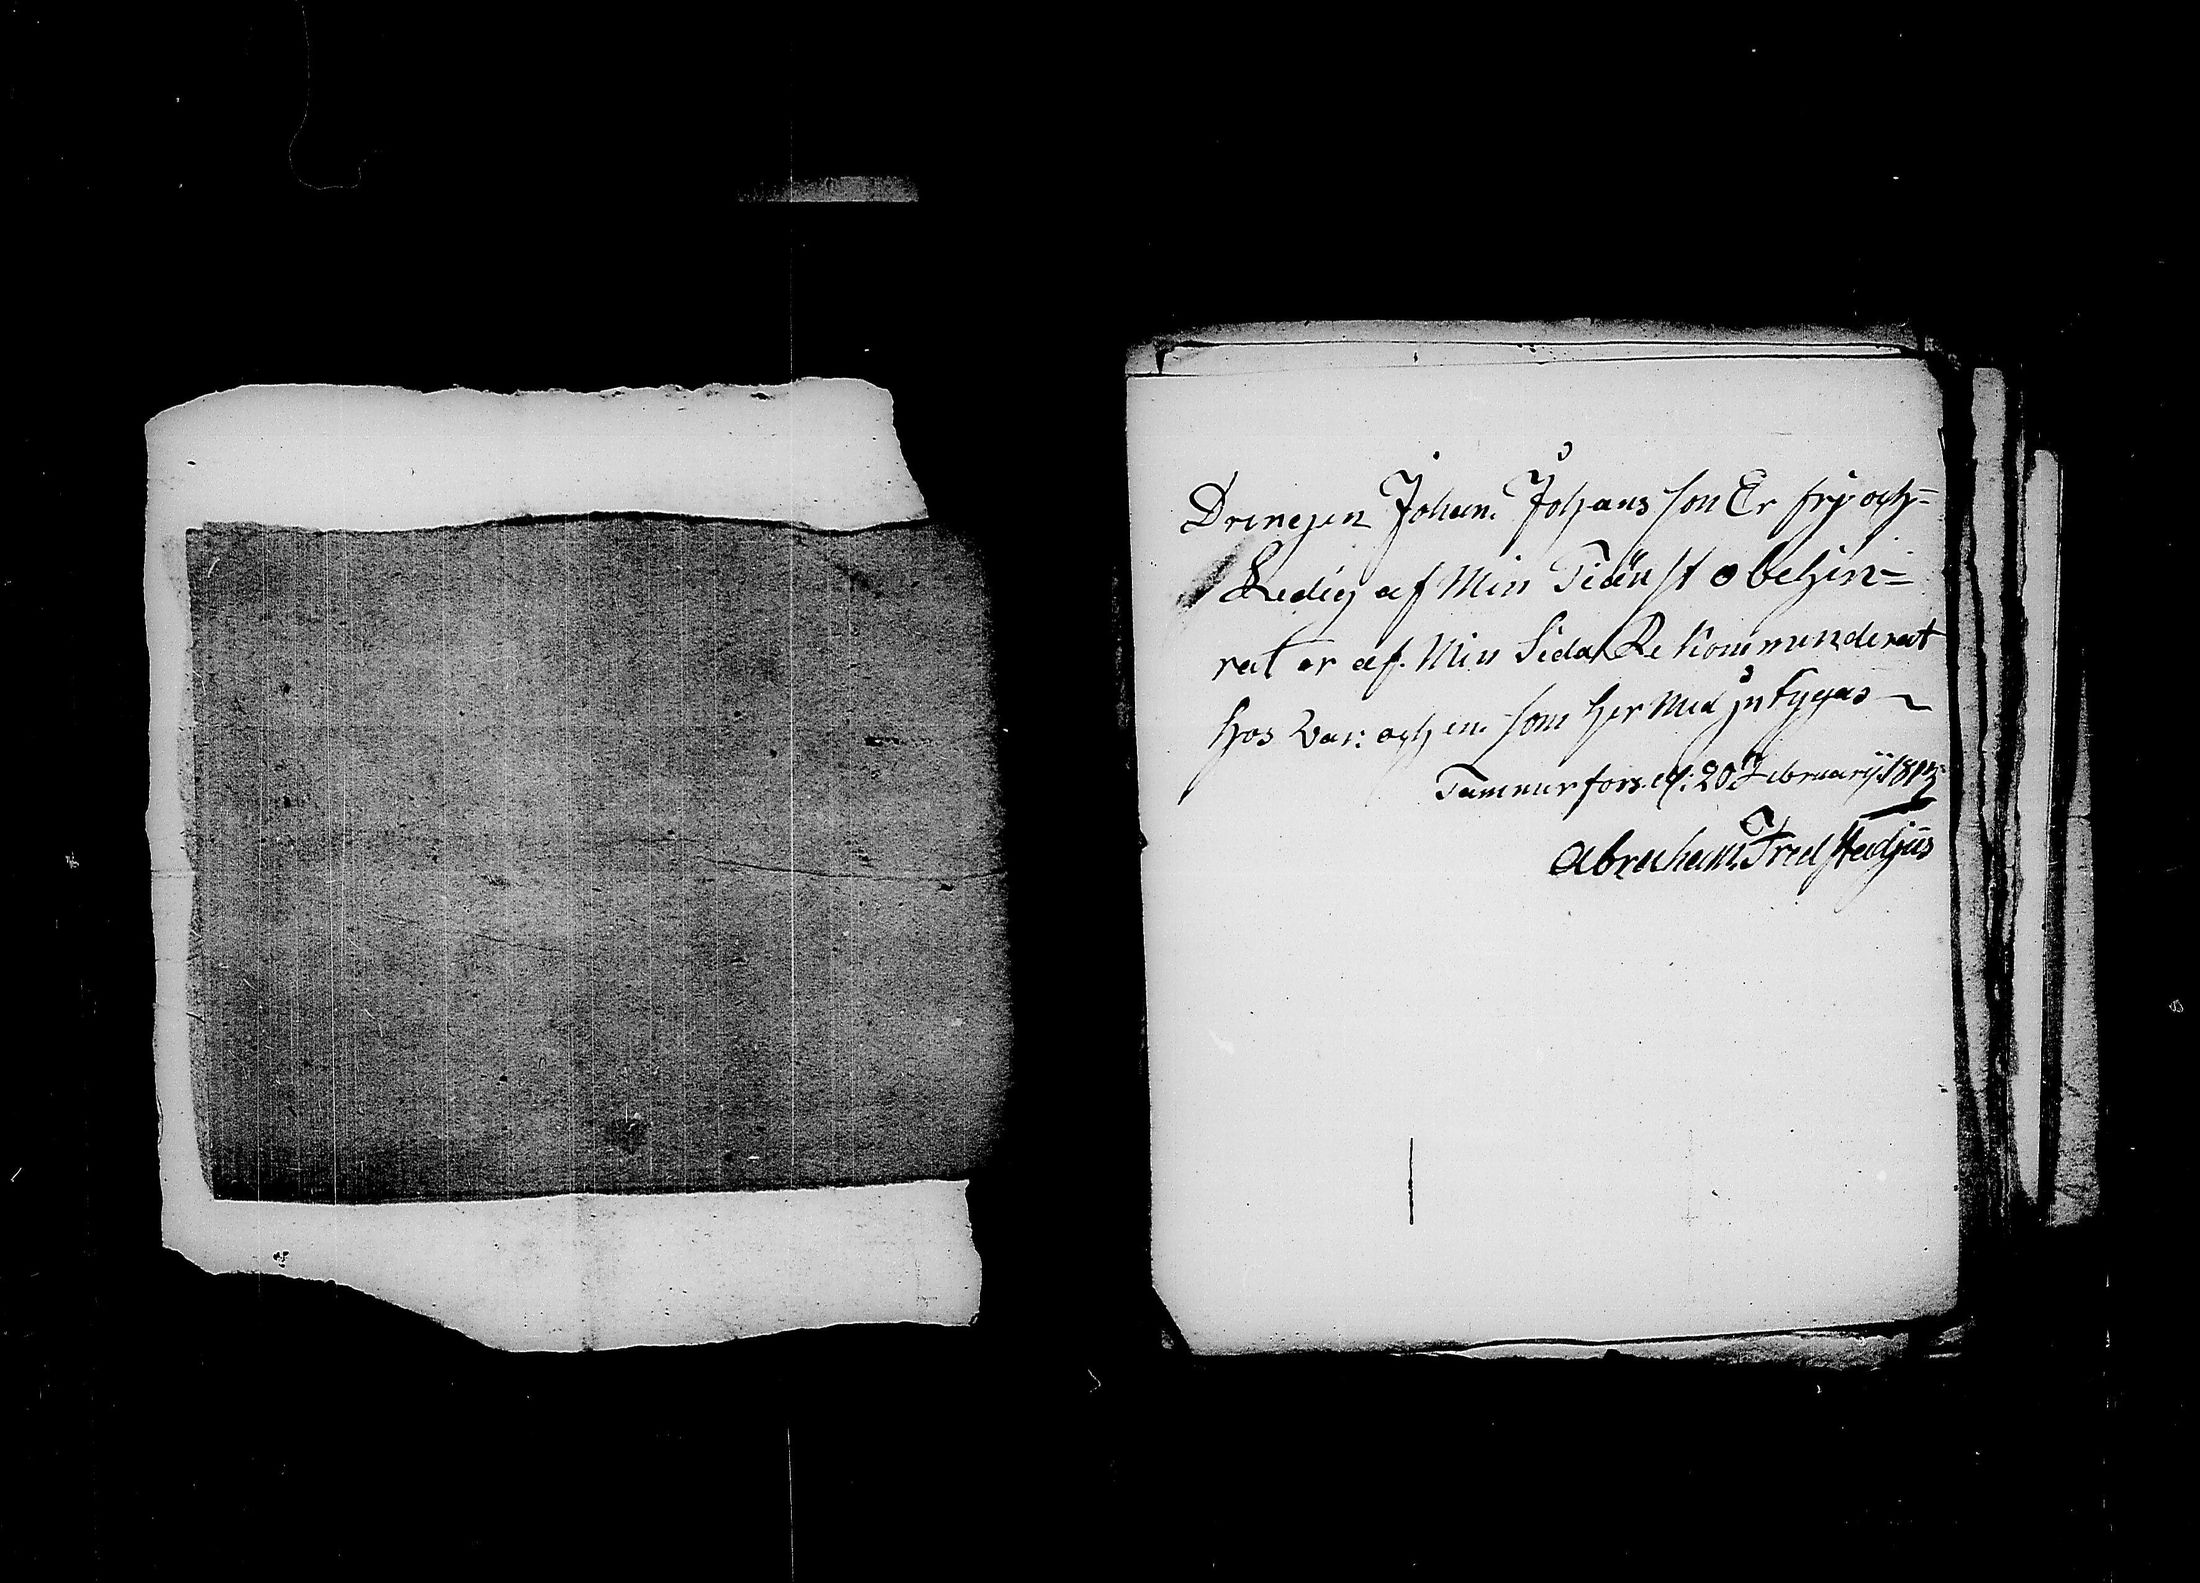 Drengen Johan Johans son Er fry och=
Ledig af Min Tiänst obehin=
rat er af Min Sida Rekommenderat
hos Var: och en som her Med jntygas
Tammerfors d: 20 Februarij 1813
Abraham Fred